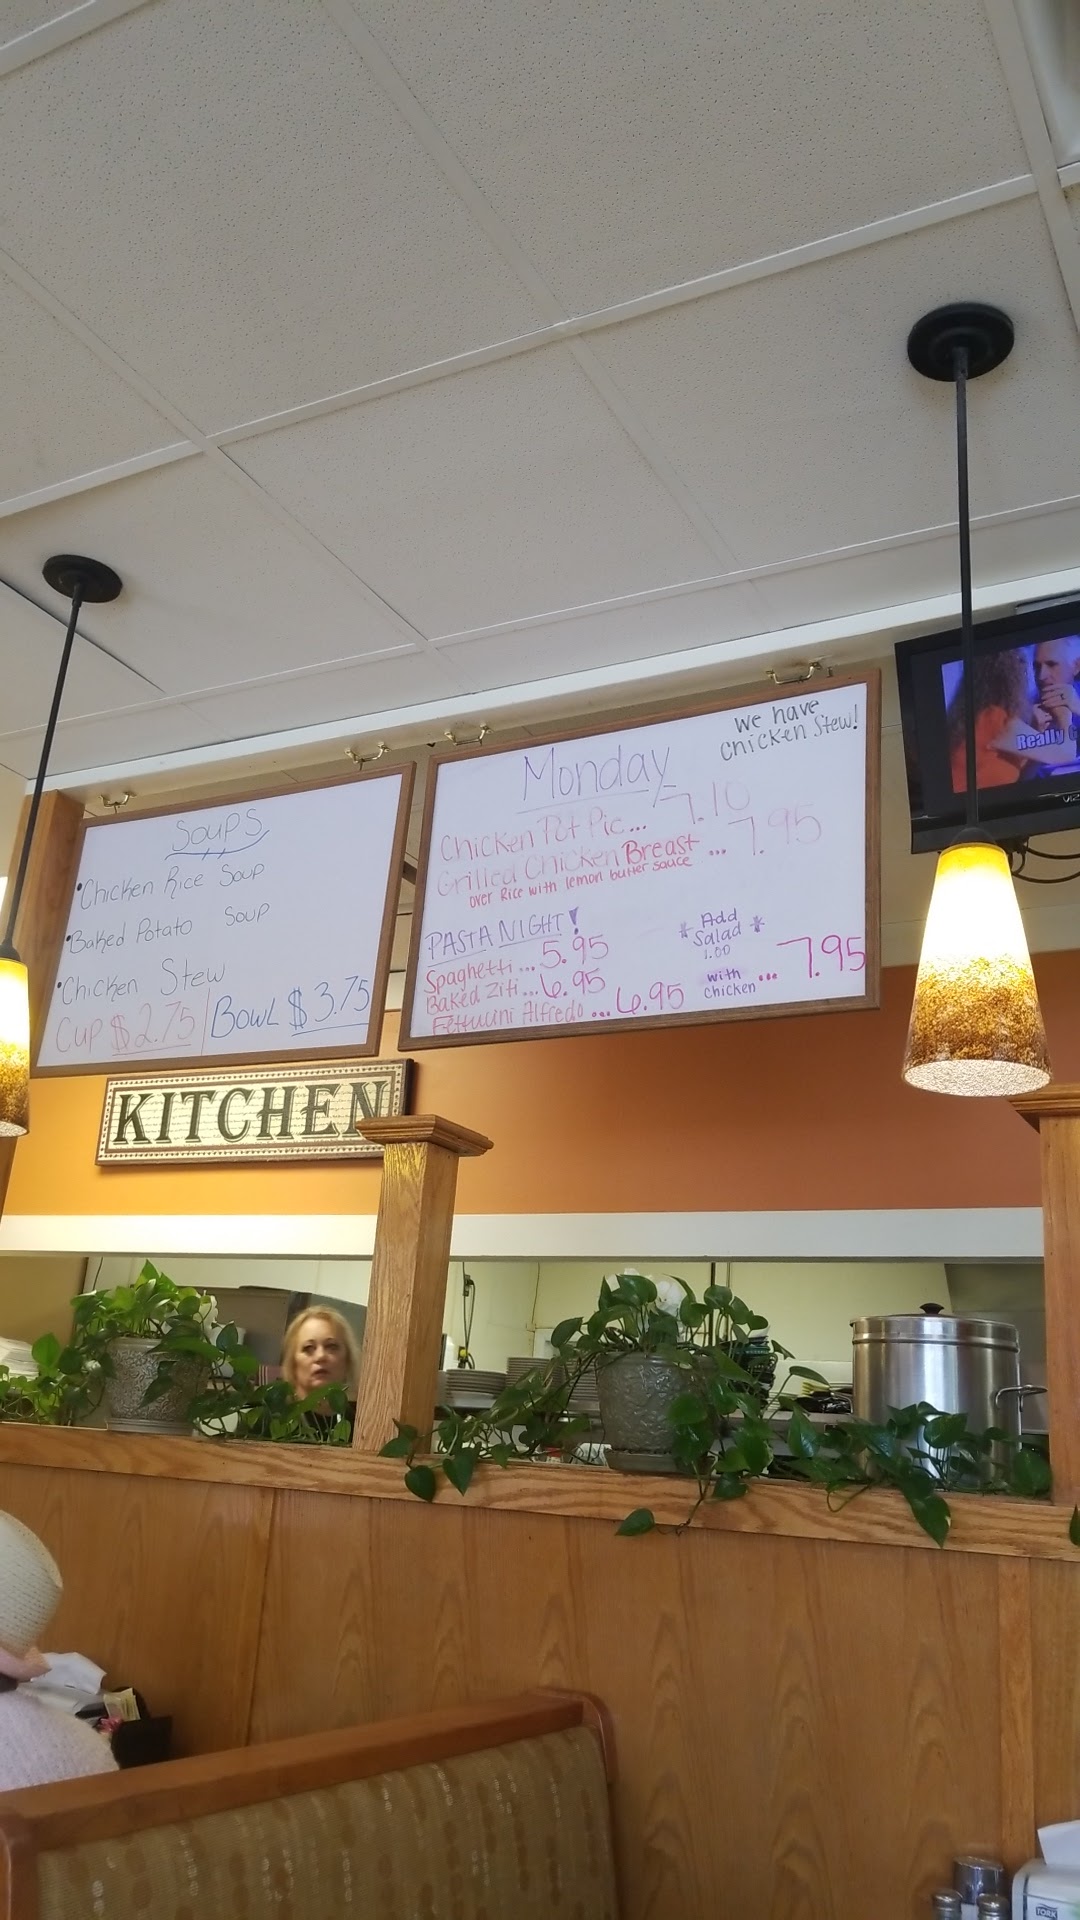 Soups
•Chicken Rice Soup
•Baked Potato Soup
•Chicken Stew
Cup $2.75 | Bowl $3.75
we have
chicken Stew!
Monday
Chicken Pot Pie... 7.10
Grilled Chicken Breast ... 7.95
over Rice with lemon butter sauce
PASTA NIGHT!
Spaghetti... 5.95
Baked Ziti... 6.95
Fettucini Alfredo ... 6.95
* Add *
Salad
1.00
with
chicken ... 7.95
KITCHEN
Really
YORK